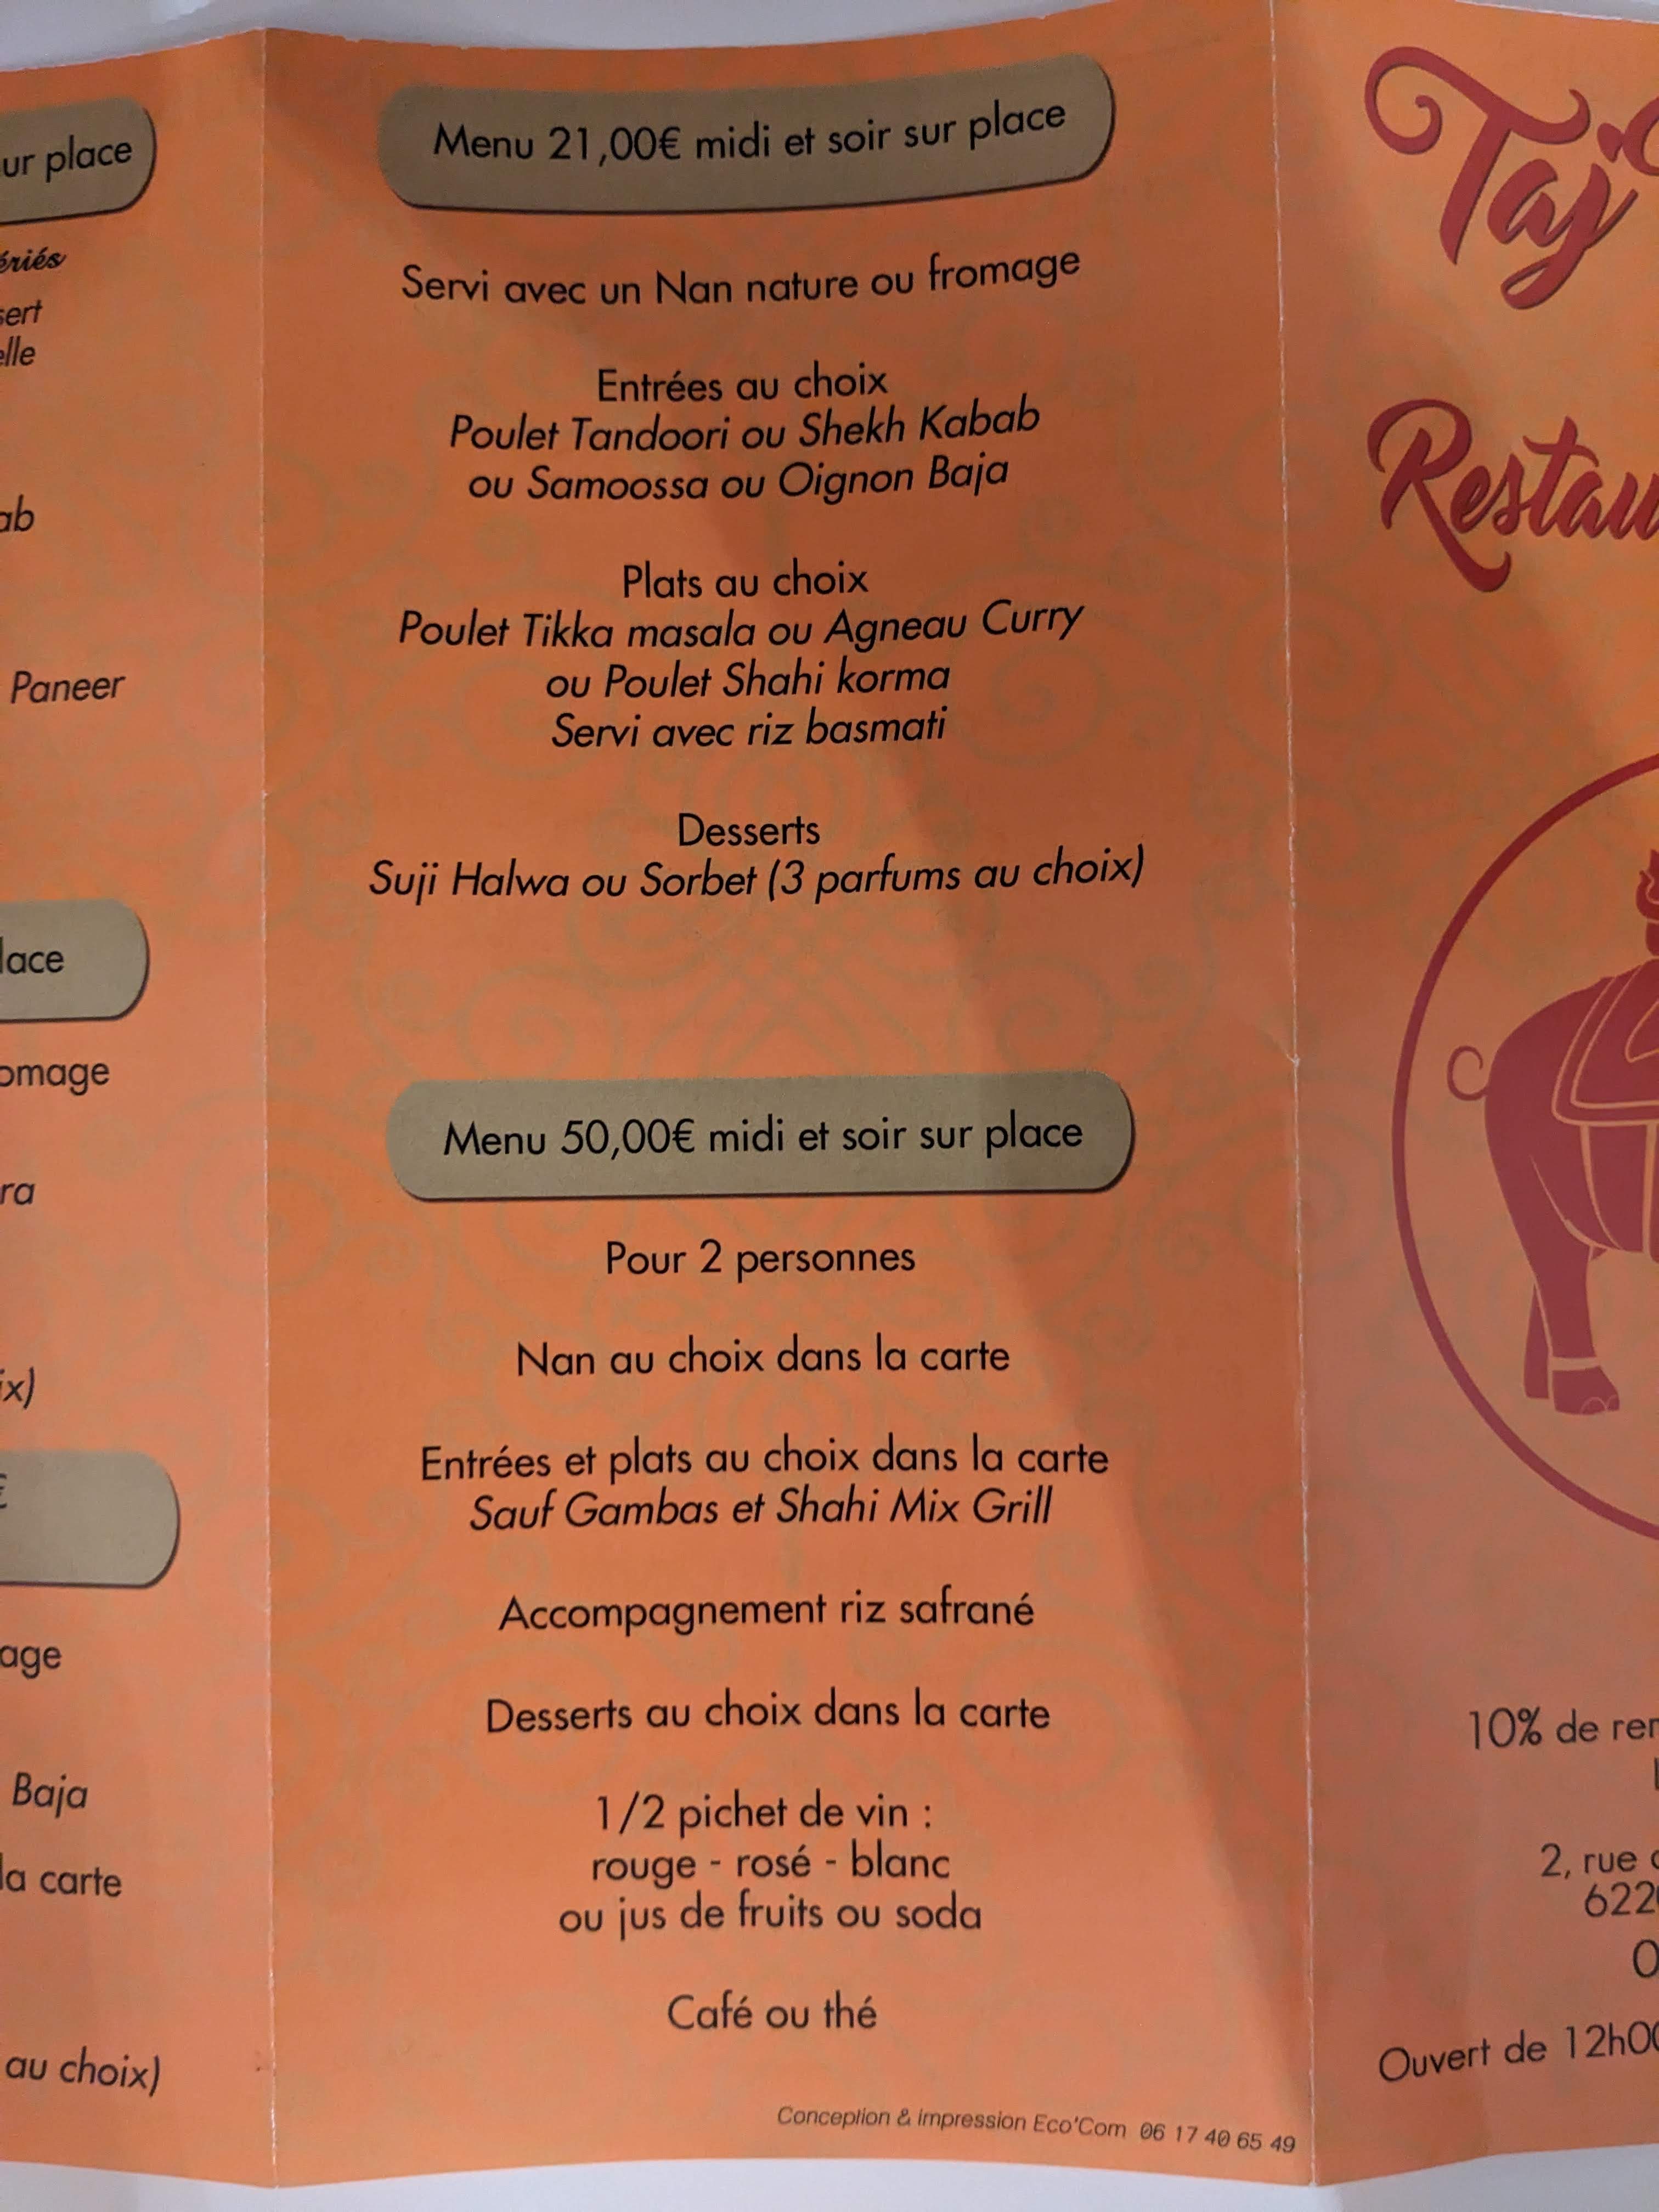 ur place
ériés
sert
elle
ab
Paneer
lace
omage
ra
ix)
€
age
Baja
la carte
au choix)
Menu 21,00€ midi et soir sur place
Servi avec un Nan nature ou fromage
Entrées au choix
Poulet Tandoori ou Shekh Kabab
ou Samoossa ou Oignon Baja
Plats au choix
Poulet Tikka masala ou Agneau Curry
ou Poulet Shahi korma
Servi avec riz basmati
Desserts
Suji Halwa ou Sorbet (3 parfums au choix)
Menu 50,00€ midi et soir sur place
Pour 2 personnes
Nan au choix dans la carte
Entrées et plats au choix dans la carte
Sauf Gambas et Shahi Mix Grill
Accompagnement riz safrané
Desserts au choix dans la carte
1/2 pichet de vin :
rouge - rosé - blanc
ou jus de fruits ou soda
Café ou thé
Conception & impression Eco'Com 06 17 40 65 49
Taj'
Restau
10% de rem
2, rue
622
0
Ouvert de 12h00